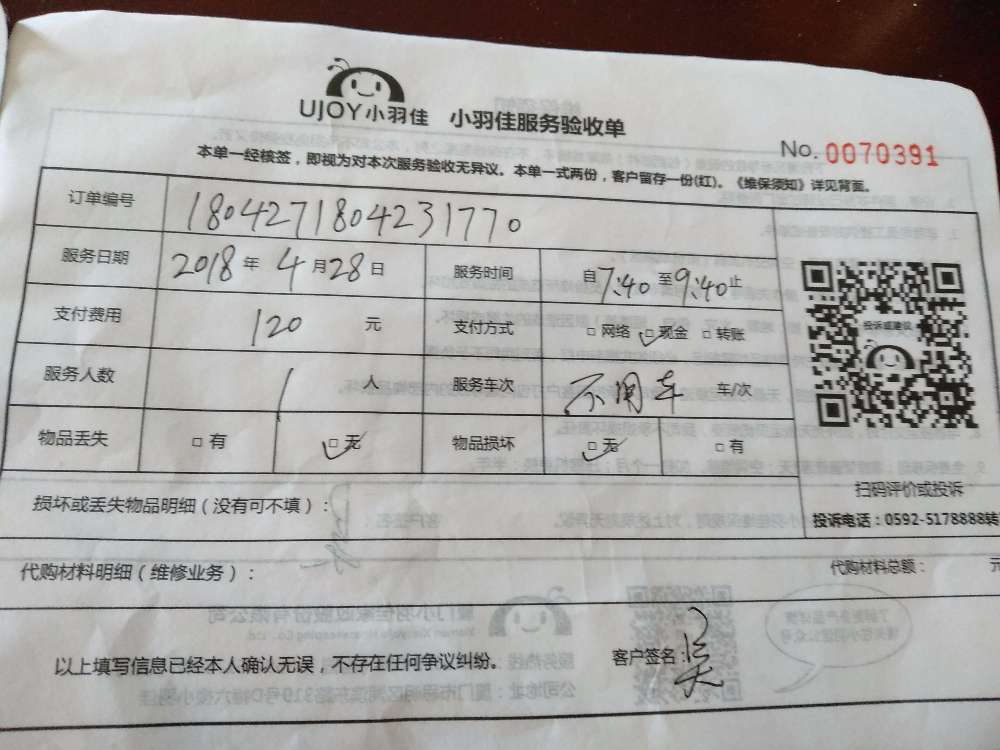 UJOY小羽佳 小羽佳服务验收单
No. 0070391
本单一经核签，即视为对本次服务验收无异议。本单一式两份，客户留存一份(红)。《维保须知》详见背面。
订单编号 1804271804231770
服务日期 2018年4月28日 服务时间 自7:40至9:40止
支付费用 120 元 支付方式 □网络 □现金 □转账
投诉或建议
服务人数 1 人 服务车次 不用车 车/次
物品丢失 □有 □无 物品损坏 □无 □有
扫码评价或投诉
损坏或丢失物品明细（没有可不填）：
投诉电话：0592-5178888转
代购材料明细（维修业务）： 代购材料总额： 元
以上填写信息已经本人确认无误，不存在任何争议纠纷。 客户签名：吴